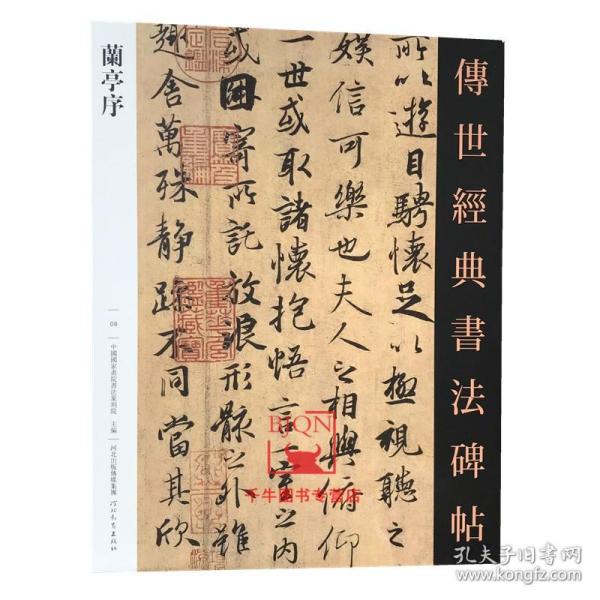 傳世經典書法碑帖
所以遊目騁懷足以極視聽之
娛信可樂也夫人之相與俯仰
一世或取諸懷抱悟言一室之内
或因寄所託放浪形骸之外雖
趣舍萬殊静躁不同當其欣
蘭亭序
08
中國國家畫院書法篆刻院 主編
河北出版傳媒集團
河北教育出版社
BJQN
千牛图书专营店
孔夫子旧书网
www.kongfz.com